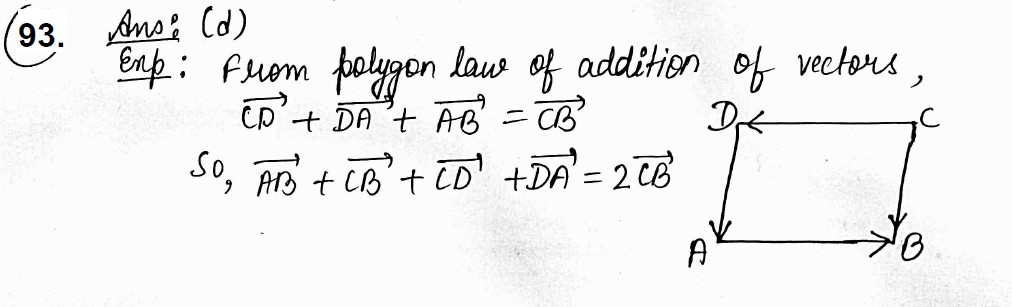 93. Ans: (d)
Exp: From polygon law of addition of vectors,
$\overrightarrow{CD} + \overrightarrow{DA} + \overrightarrow{AB} = \overrightarrow{CB}$
So, $\overrightarrow{AB} + \overrightarrow{CB} + \overrightarrow{CD} + \overrightarrow{DA} = 2\overrightarrow{CB}$
D C
A B